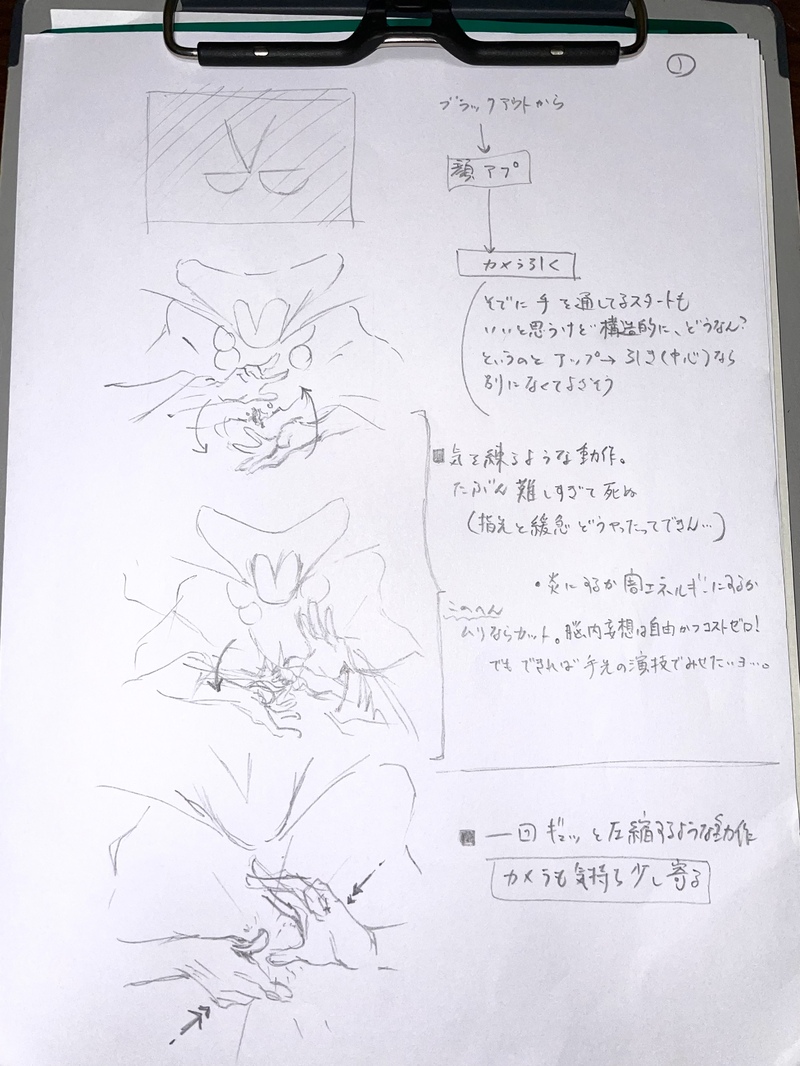 1
ブラックアウトから
顔アプ
カメラ引く
そでに手を通してるスタートも
いいと思うけど構造的に、どうなん?
というのとアップ→引き(中心)なら
別になくてよさそう
気を練るような動作。
たぶん難しすぎて死ぬ
(指先と緩急どうやったってできん…)
・炎にするか闇エネルギーにするか
このへん
ムリならカット。脳内妄想は自由かつコストゼロ!
でもできれば手先の演技でみせたいヨ…。
一回ギュッと圧縮するような動作
カメラも気持ち少し寄る